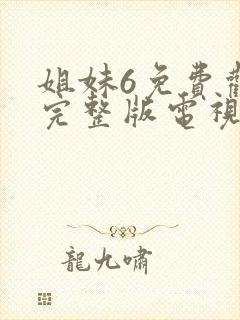 姐妹6免費
完整版電視
龍九嘯